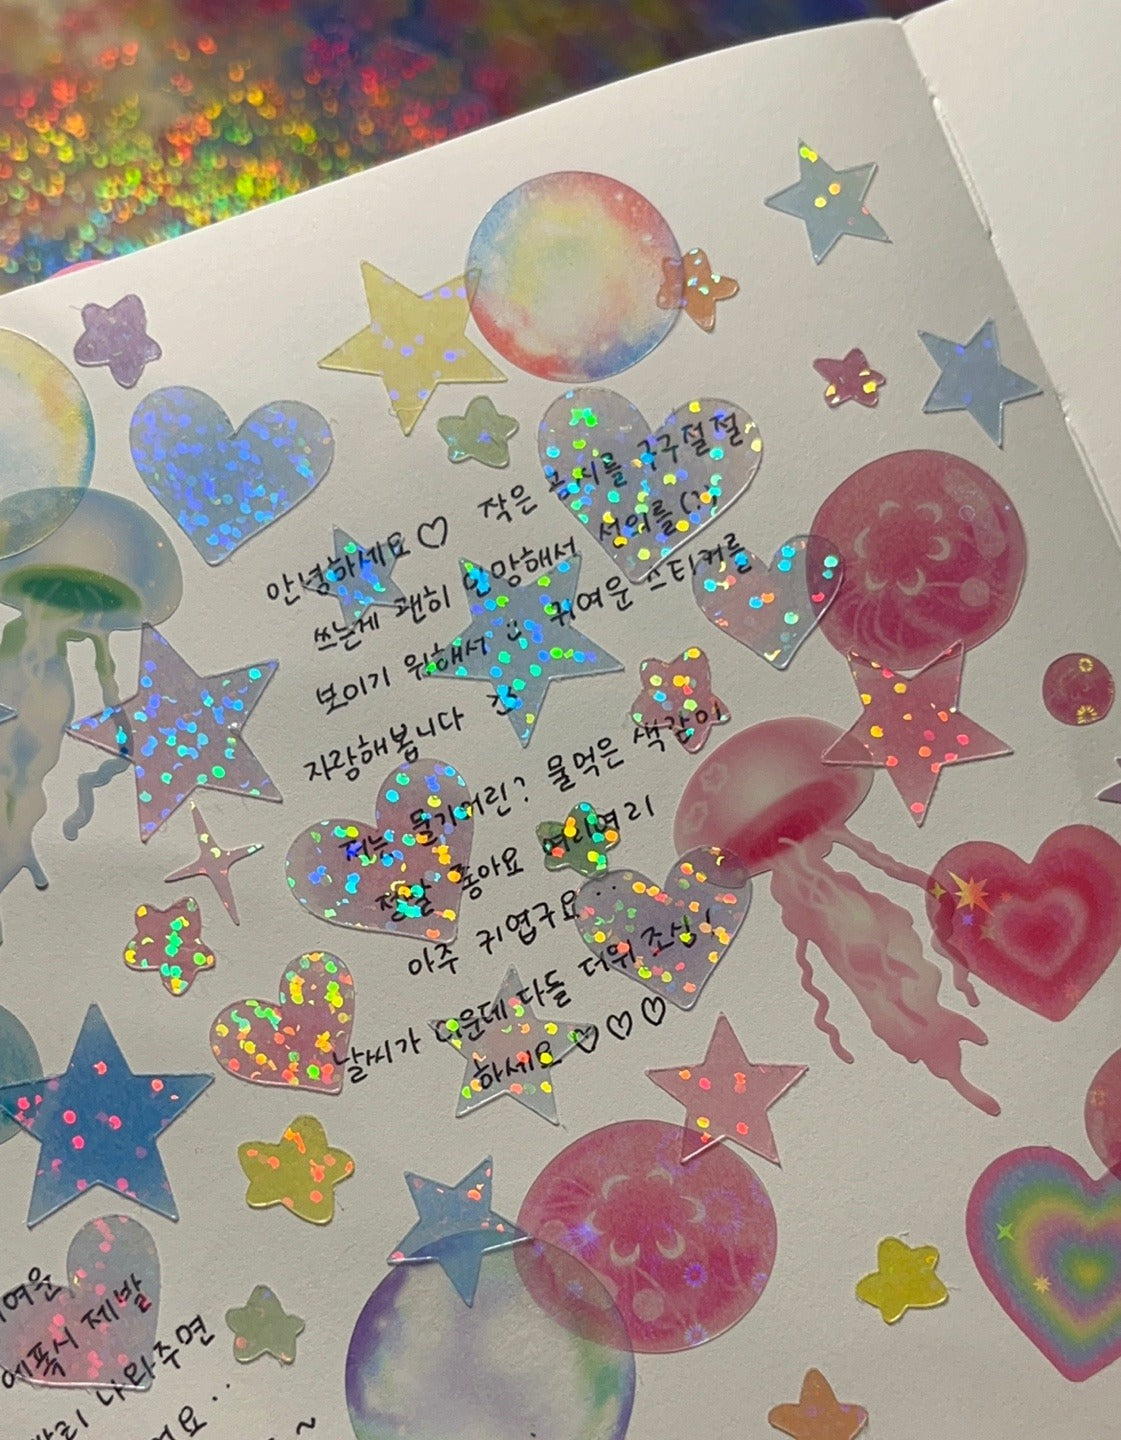 안녕하세요♡ 작은 곰씨를 구구절절
쓰는게 괜히 민망해서 성의를(?)
보이기 위해서 :) 귀여운 스티커를
자랑해봅니다
저는 물기어린? 물먹은 색감이
정말 좋아요 여리여리
아주 귀엽구요..
날씨가 더운데 다들 더위 조심!
하세요 ♡♡♡
여운
에폭시 제발
빨리 나와주면
~